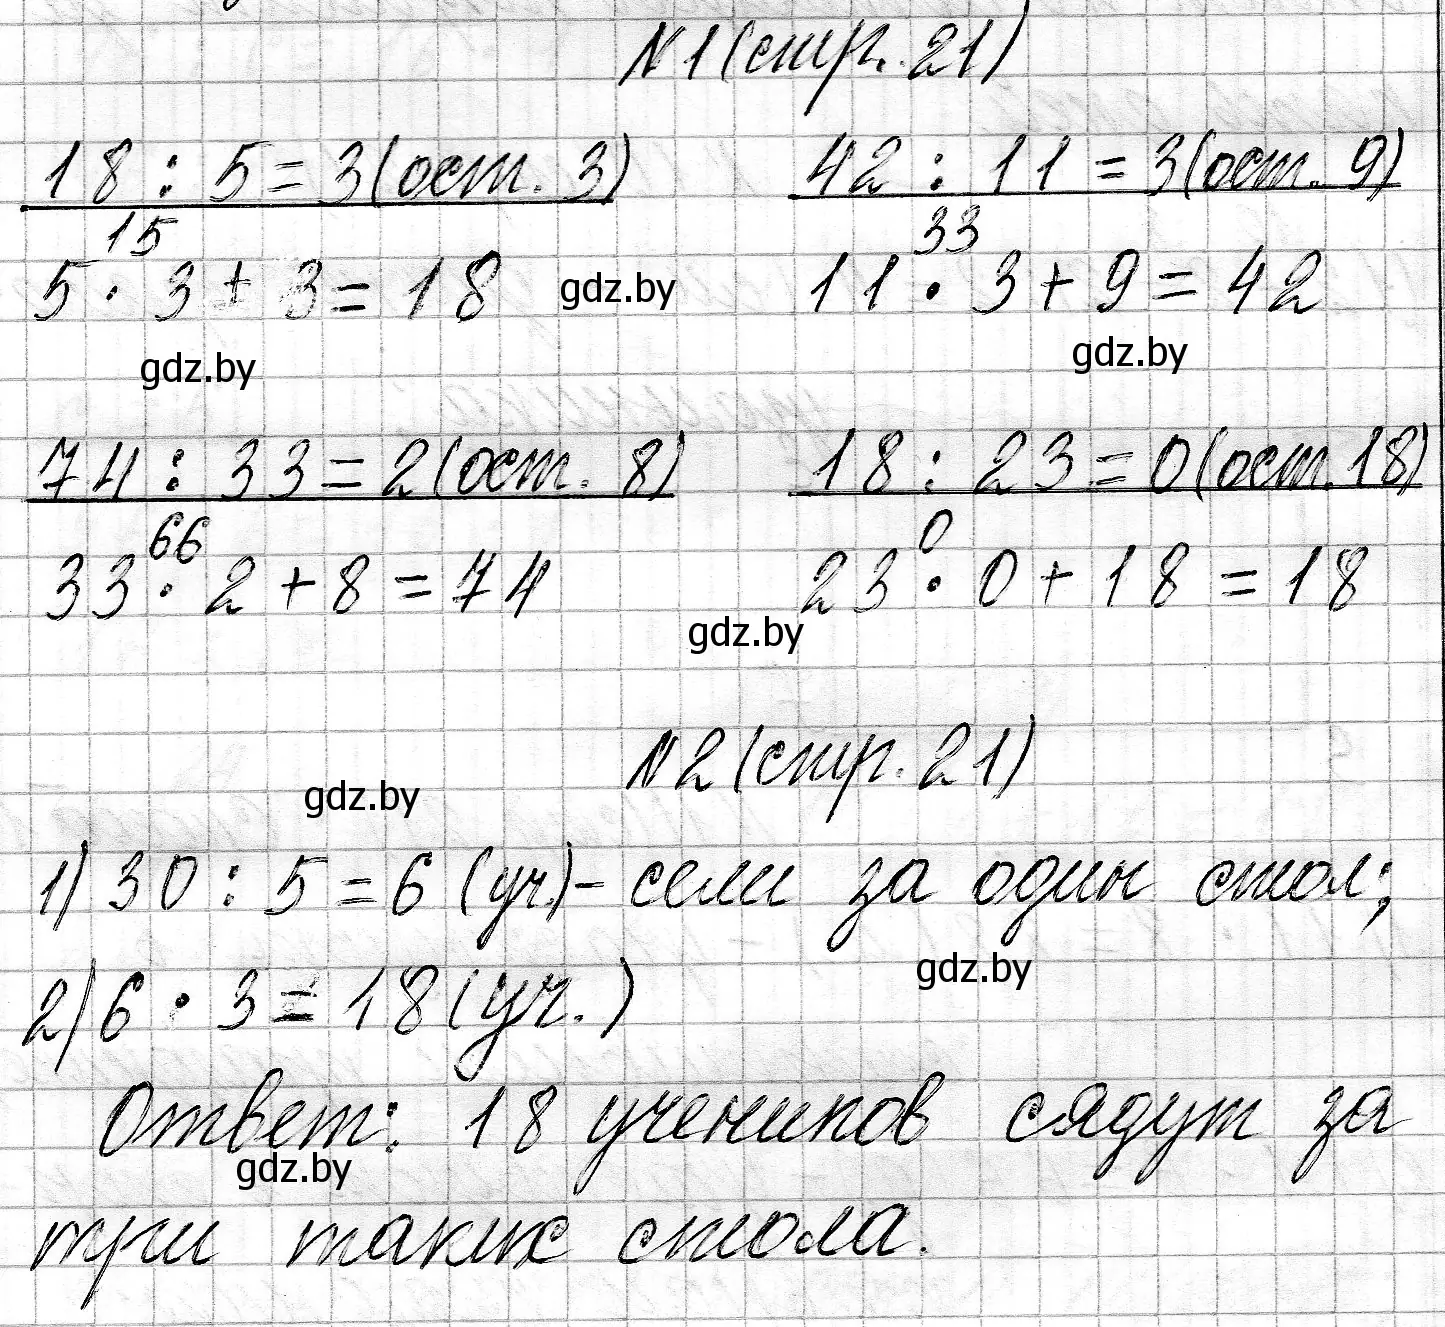 №1 (стр. 21)
18 : 5 = 3 (ост. 3)
15
5 · 3 + 3 = 18
gdz.by
gdz.by
42 : 11 = 3 (ост. 9)
33
11 · 3 + 9 = 42
gdz.by
74 : 33 = 2 (ост. 8)
66
33 · 2 + 8 = 74
18 : 23 = 0 (ост. 18)
0
23 · 0 + 18 = 18
gdz.by
№2 (стр. 21)
gdz.by
1) 30 : 5 = 6 (уч.) - сели за один стол;
gdz.by
2) 6 · 3 = 18 (уч.)
Ответ: 18 учеников сядут за
gdz.by
три таких стола.